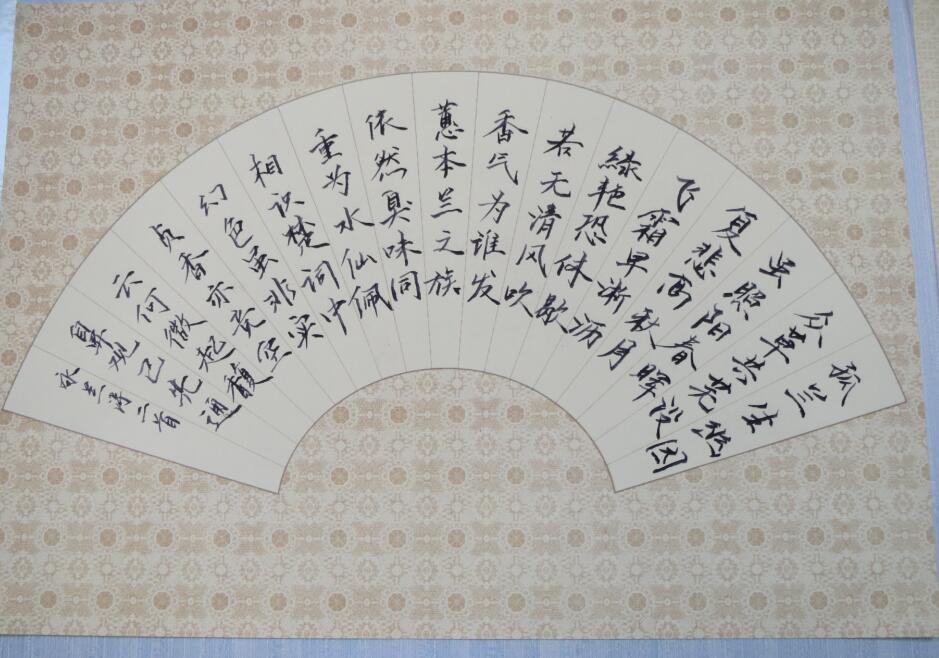 孤兰生幽园
众草共芜没
虽照阳春晖
复悲高秋月
飞霜早淅沥
绿艳恐休歇
若无清风吹
香气为谁发
蕙本兰之族
依然臭味同
重为水仙佩
相识楚词中
幻色虽非实
贞香亦竟空
云何微起馥
鼻观已先通
咏兰诗二首